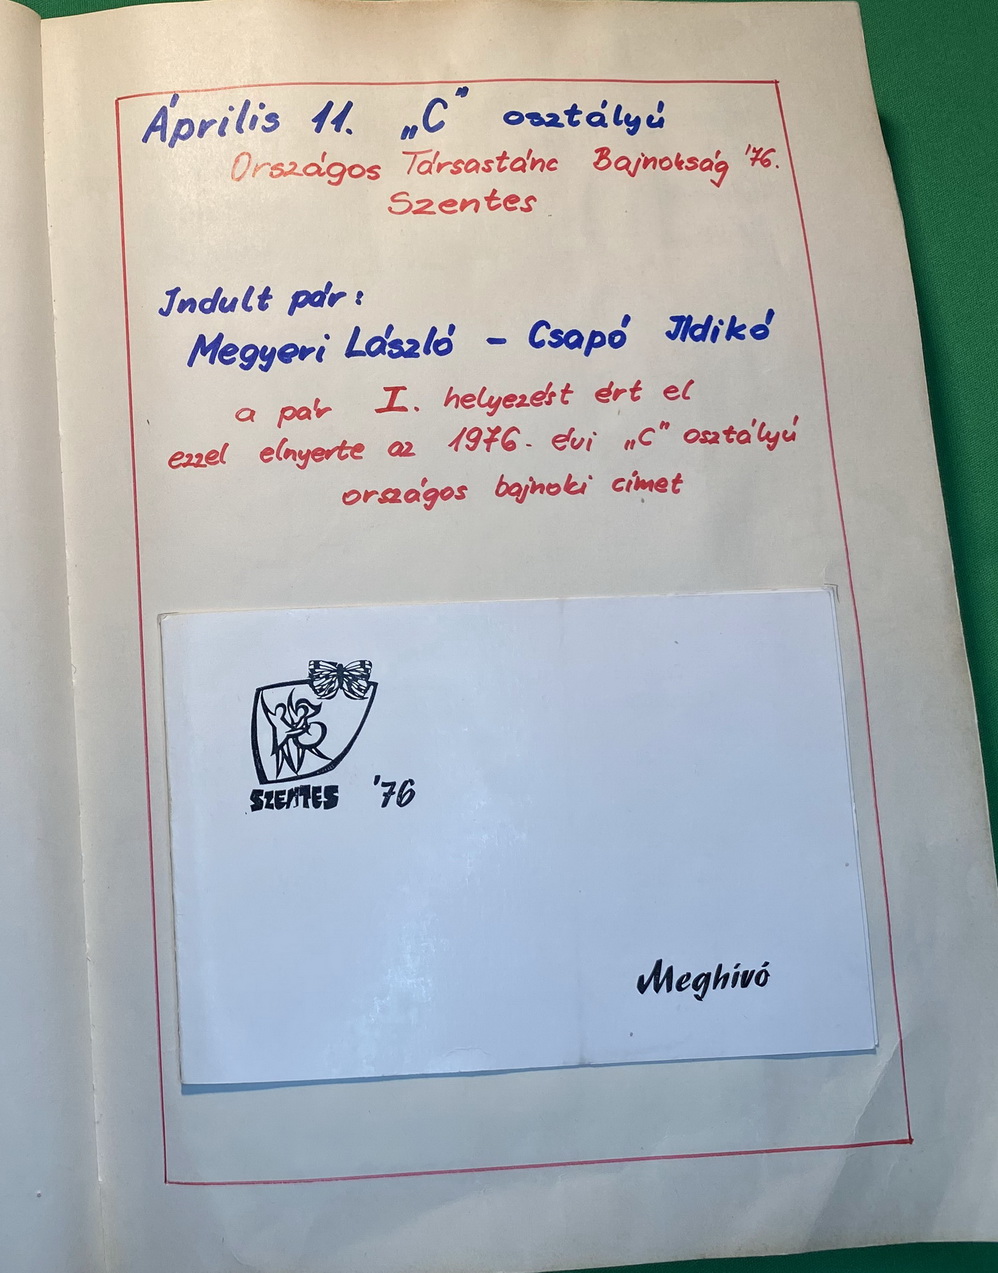 Április 11. „C" osztályú
Országos Társastánc Bajnokság '76.
Szentes
Indult pár:
Megyeri László - Csapó Ildikó
a pár I. helyezést ért el
ezzel elnyerte az 1976. évi „C" osztályú
országos bajnoki címet
SZENTES '76
Meghívó